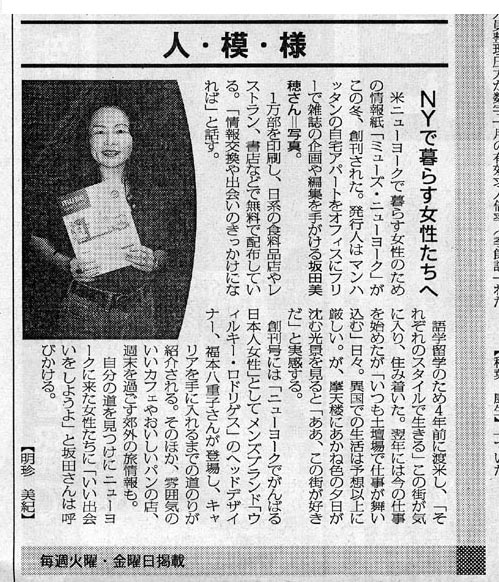 人・模・様
ＮＹで暮らす女性たちへ
米ニューヨークで暮らす女性のため
の情報紙「ミューズ・ニューヨーク」が
この冬、創刊された。発行人はマンハ
ッタンの自宅アパートをオフィスにフリ
ーで雑誌の企画や編集を手がける坂田美
穂さん＝写真。
１万部を印刷し、日系の食料品店やレ
ストラン、書店などで無料で配布してい
る。「情報交換や出会いのきっかけにな
れば」と話す。
語学留学のため４年前に渡米し、「そ
れぞれのスタイルで生きる」この街が気
に入り、住み着いた。翌年には今の仕事
を始めたが「いつも土壇場で仕事が舞い
込む」日々。異国での生活は予想以上に
厳しい。が、摩天楼にあかね色の夕日が
沈む光景を見ると「ああ、この街が好き
だ」と実感する。
創刊号には「ニューヨークでがんばる
日本人女性」としてメンズブランド「ウ
ィルキー・ロドリゲス」のヘッドデザイ
ナー、福本八重子さんが登場し、キャ
リアを手に入れるまでの道のりが
紹介される。そのほか、雰囲気の
いいカフェやおいしいパンの店、
週末を過ごす郊外の旅情報も。
自分の道を見つけにニューヨ
ークに来た女性たちに「いい出会
いをしようよ」と坂田さんは呼
びかける。
【明珍 美紀】
毎週火曜・金曜日掲載